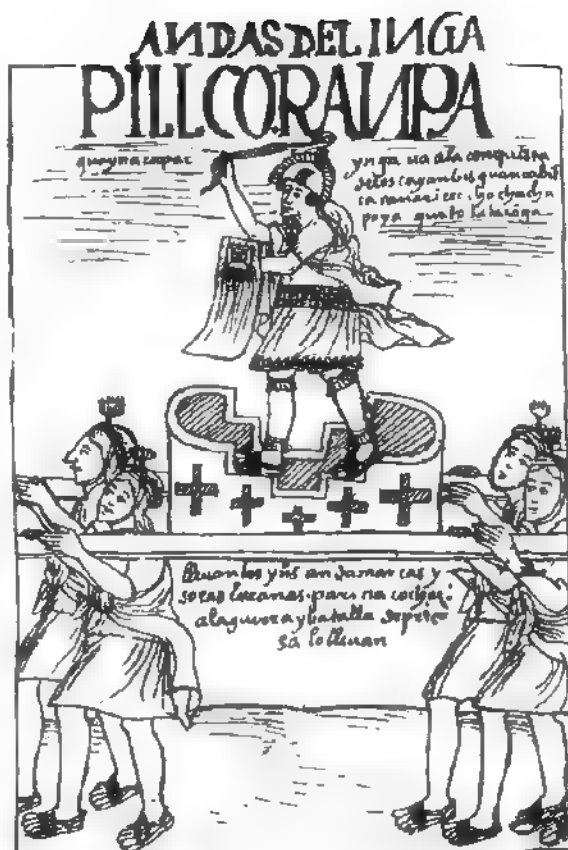 ANDAS DEL INGA
PILLCORANPA
guayna capac
ynga ua a la conquista
delos cayanbis guanca bil
ca canari chachap
poya quito lataconga
lleuan los yns andamarcas y
soras lucanas parinacochas
a la guerra y batalla depri
sa lo lleuan